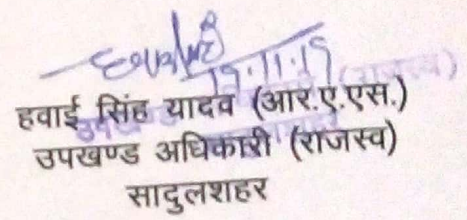 19.11.19
हवाई सिंह यादव (आर.ए.एस.)
उपखण्ड अधिकारी (राजस्व)
सादुलशहर